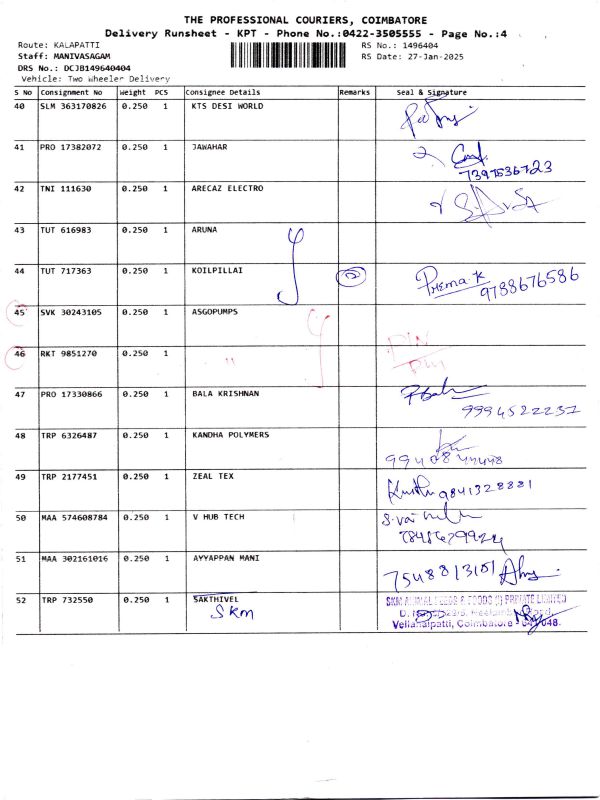 THE PROFESSIONAL COURIERS, COIMBATORE
Delivery Runsheet - KPT - Phone No.:0422-3505555 - Page No.:4
Route: KALAPATTI RS No.: 1496404
Staff: MANIVASAGAM RS Date: 27-Jan-2025
DRS No.: DCJB149640404
Vehicle: Two Wheeler Delivery
S No Consignment No Weight PCS Consignee Details Remarks Seal & Signature
40 SLM 363170826 0.250 1 KTS DESI WORLD
41 PRO 17382072 0.250 1 JAWAHAR
7397536723
42 TNI 111630 0.250 1 ARECAZ ELECTRO
43 TUT 616983 0.250 1 ARUNA
44 TUT 717363 0.250 1 KOILPILLAI 2 Prema.K
9788676586
45 SVK 30243105 0.250 1 ASGOPUMPS
46 RKT 9851270 0.250 1 "
47 PRO 17330866 0.250 1 BALA KRISHNAN
9994522237
48 TRP 6326487 0.250 1 KANDHA POLYMERS
49 TRP 2177451 0.250 1 ZEAL TEX 9841328881
50 MAA 574608784 0.250 1 V HUB TECH
51 MAA 302161016 0.250 1 AYYAPPAN MANI
7548813101
52 TRP 732550 0.250 1 SAKTHIVEL SKM ANIMAL FEEDS & FOODS (I) PRIVATE LIMITED
SKM
Vellanaipatti, Coimbatore - 641 048.